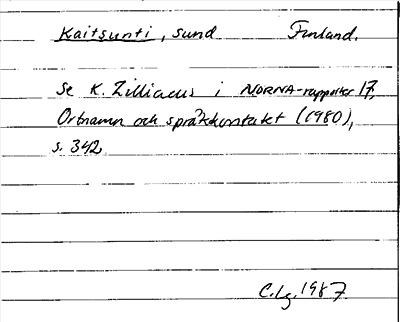 Kaitsunti, sund Finland.
Se K. Zilliacus i NORNA-rapporter 17,
Ortnamn och språkkontakt (1980),
s. 342.
C.Lg. 1987.